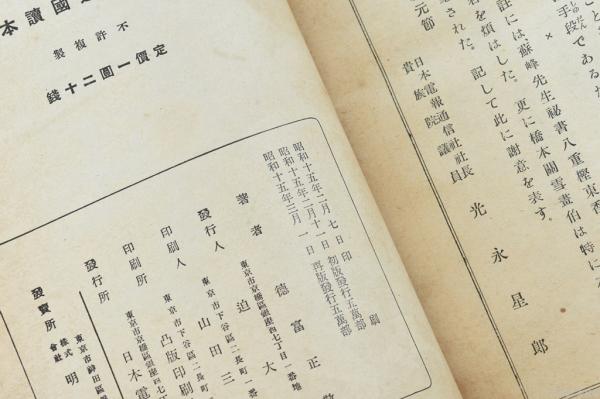 ことを
手段であるか
×
註には、蘇峰先生祕書八重樫東香
は特に
名を煩はした。更に橋本關雪畫伯
された。記して此に謝意を表す。
元節
日本電報通信社社長
貴族院議員
光永星郎
國讀本
不許複製
定價一圓二十錢
昭和十五年二月七日印刷
昭和十五年二月十一日初版發行五萬部
昭和十五年三月一日再版發行五萬部
著者 德富正敬
東京市京橋區銀座西七丁目一番地
發行人 迫大
東京市下谷區二長町一番
印刷人 山田三
東京市下谷區二長町
印刷所 凸版印刷
東京市京橋區銀座西七
發行所 日本電
東京市神田區
發賣所 株式會社 明